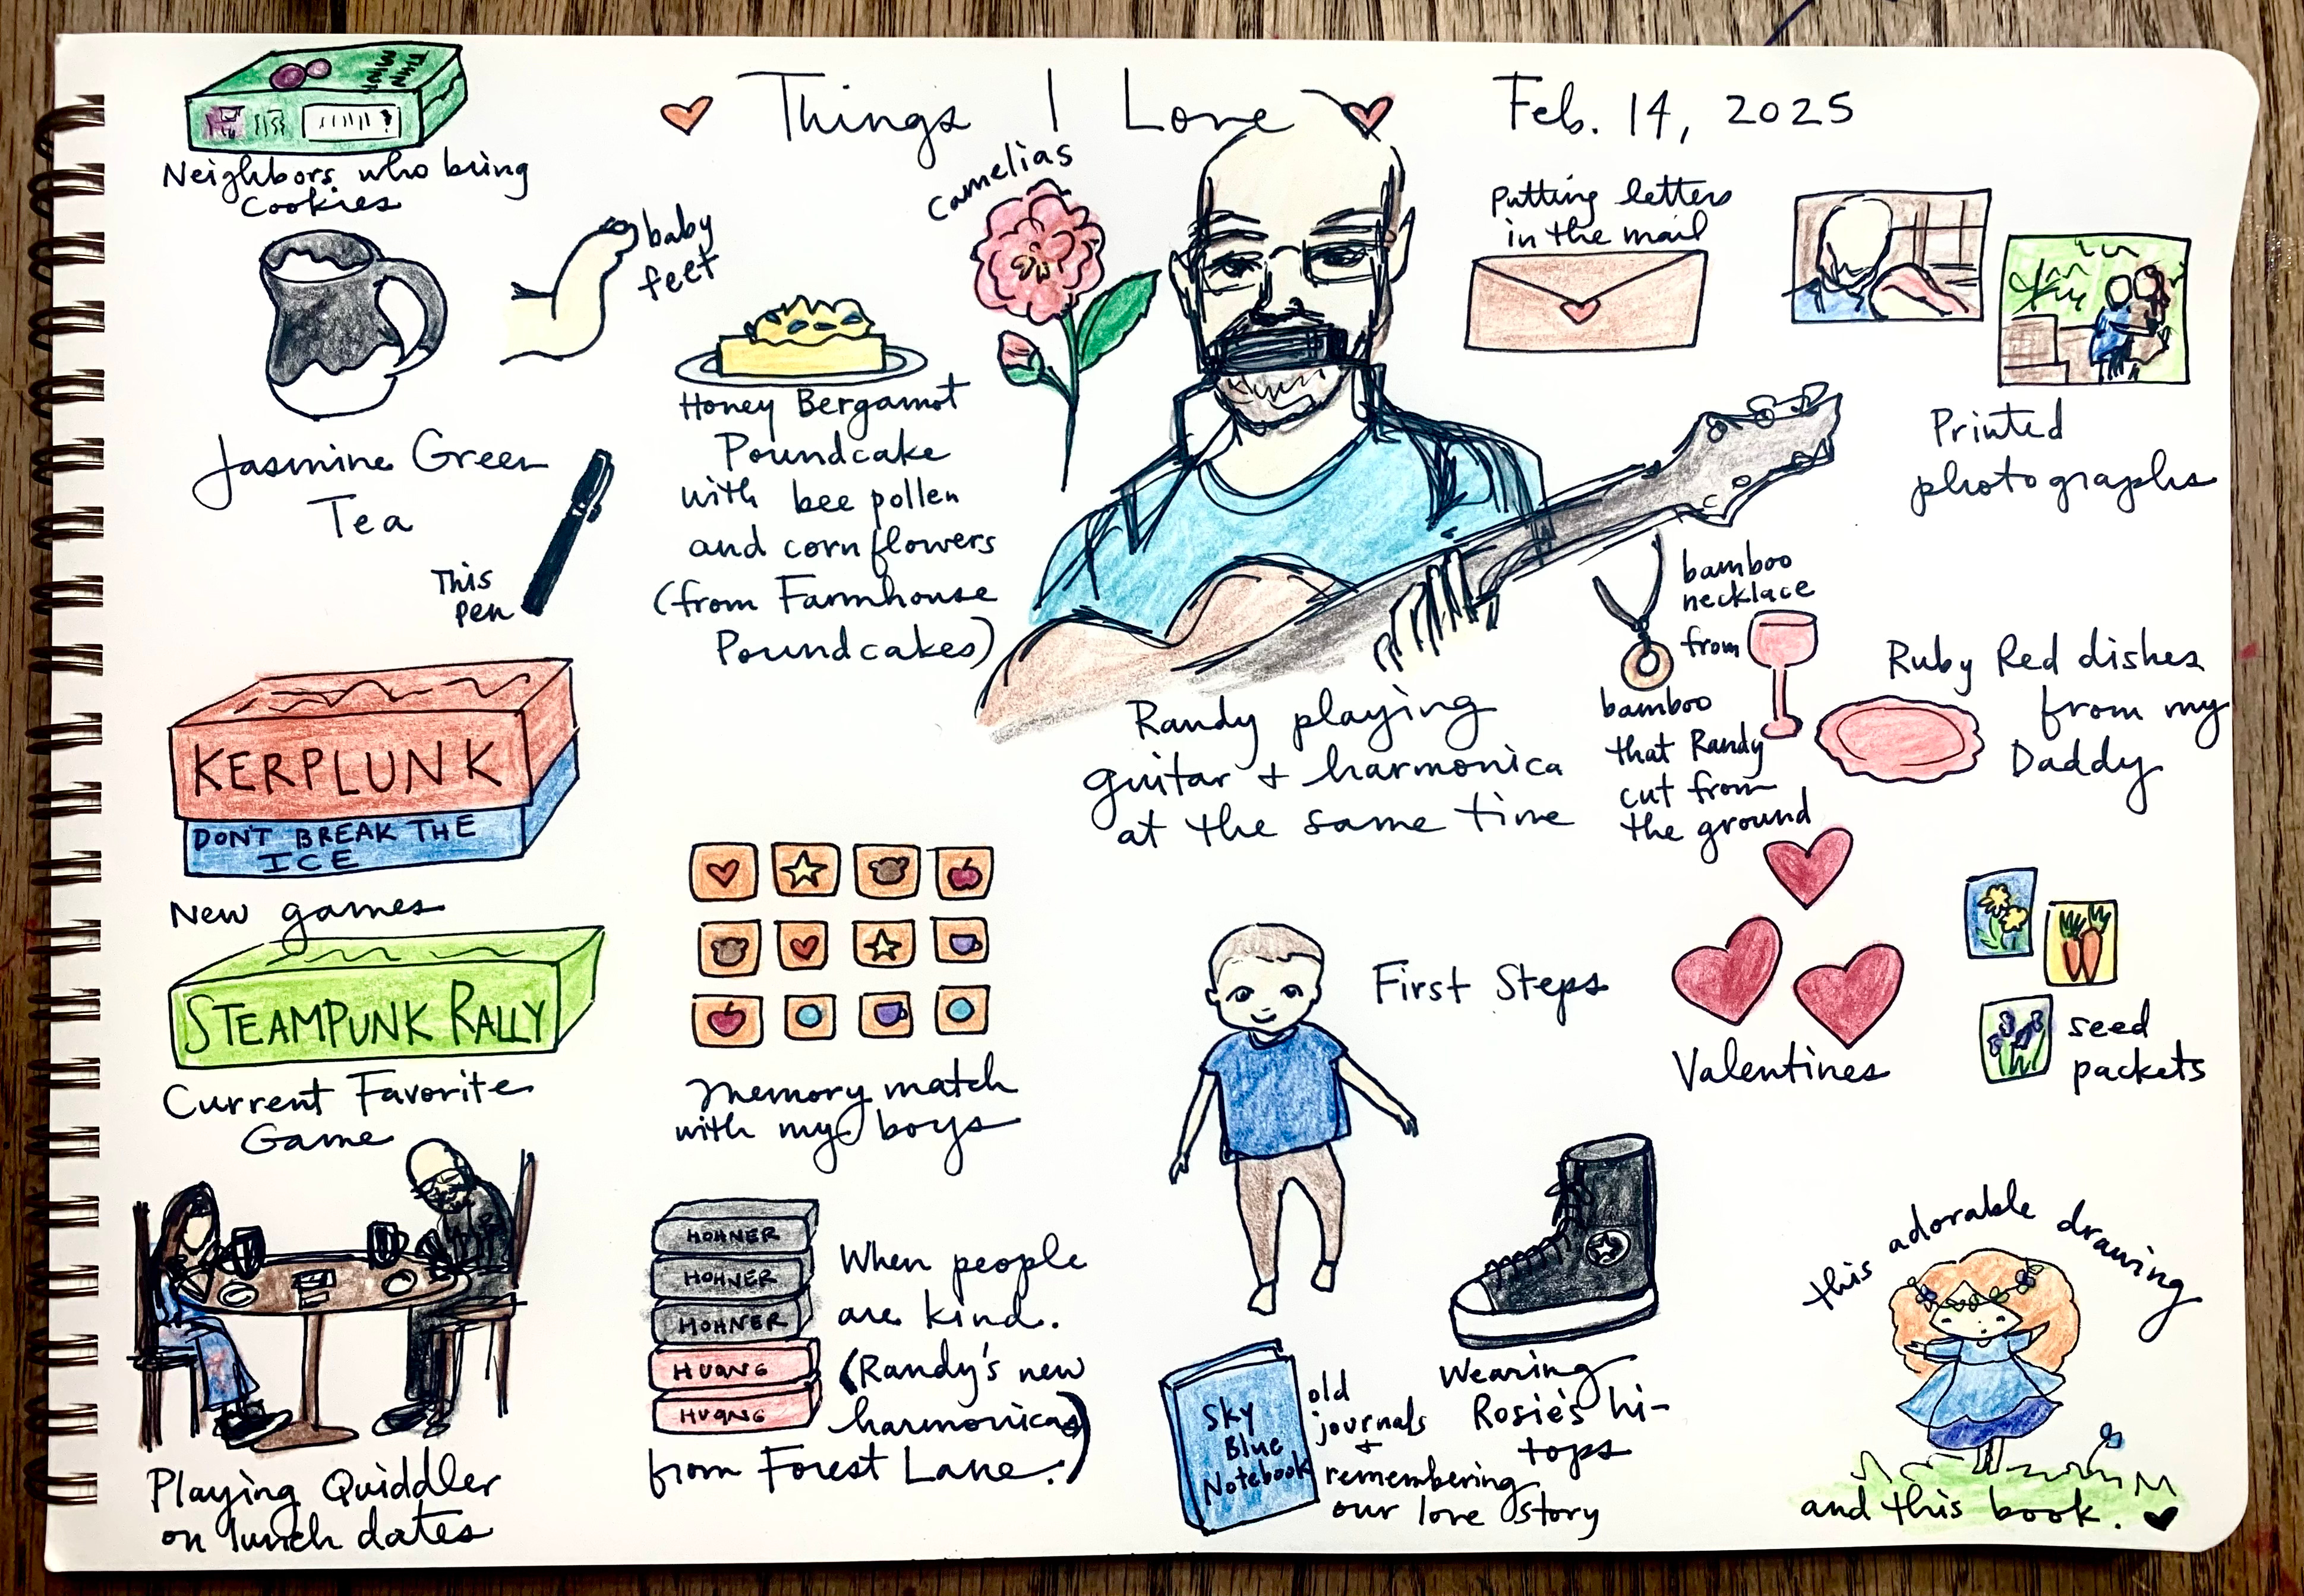 Things I Love
Feb. 14, 2025
THIN
MINT
Neighbors who bring
cookies
baby
feet
Jasmine Green
Tea
This
pen
Honey Bergamot
Poundcake
with bee pollen
and cornflowers
(from Farmhouse
Poundcakes)
camelias
Randy playing
guitar + harmonica
at the same time
Putting letters
in the mail
Printed
photographs
bamboo
necklace
from
bamboo
that Randy
cut from
the ground
Ruby Red dishes
from my
Daddy
KERPLUNK
DON'T BREAK THE
ICE
New games
STEAMPUNK RALLY
Current Favorite
Game
Playing Quiddler
on lunch dates
Memory match
with my boys
HOHNER
HOHNER
HOHNER
HUANG
HUANG
When people
are kind.
(Randy's new
harmonicas)
from Forest Lane.:)
First Steps
Valentines
seed
packets
Wearing
Rosie's hi-
tops
Sky
Blue
Notebook
old
journals
+
remembering
our love story
this adorable drawing
and this book.